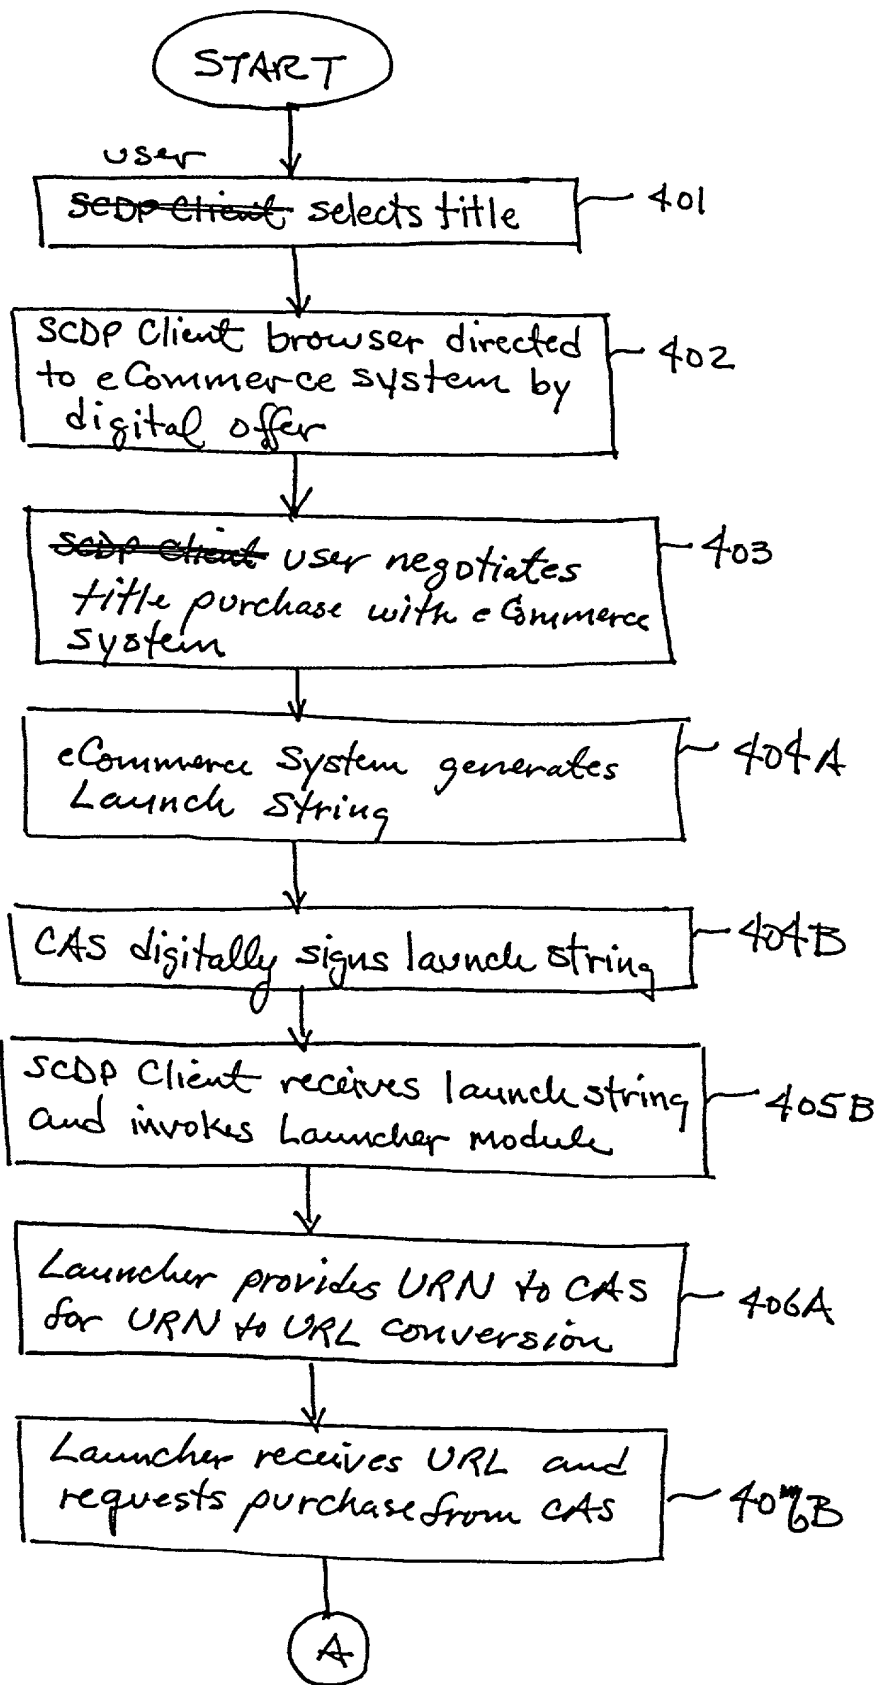 START
user
SCDP Client selects title
401
SCDP Client browser directed
to eCommerce system by
digital offer
402
SCDP Client user negotiates
title purchase with eCommerce
system
403
eCommerce System generates
Launch String
404A
CAS digitally signs launch string
404B
SCDP Client receives launch string
and invokes Launcher module
405B
Launcher provides URN to CAS
for URN to URL conversion
406A
Launcher receives URL and
requests purchase from CAS
A